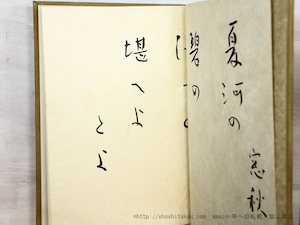 窓秋
夏河の
碧の
堪へよ
とよ
©http://shoshitakou.com amazon等への転載・加工禁止